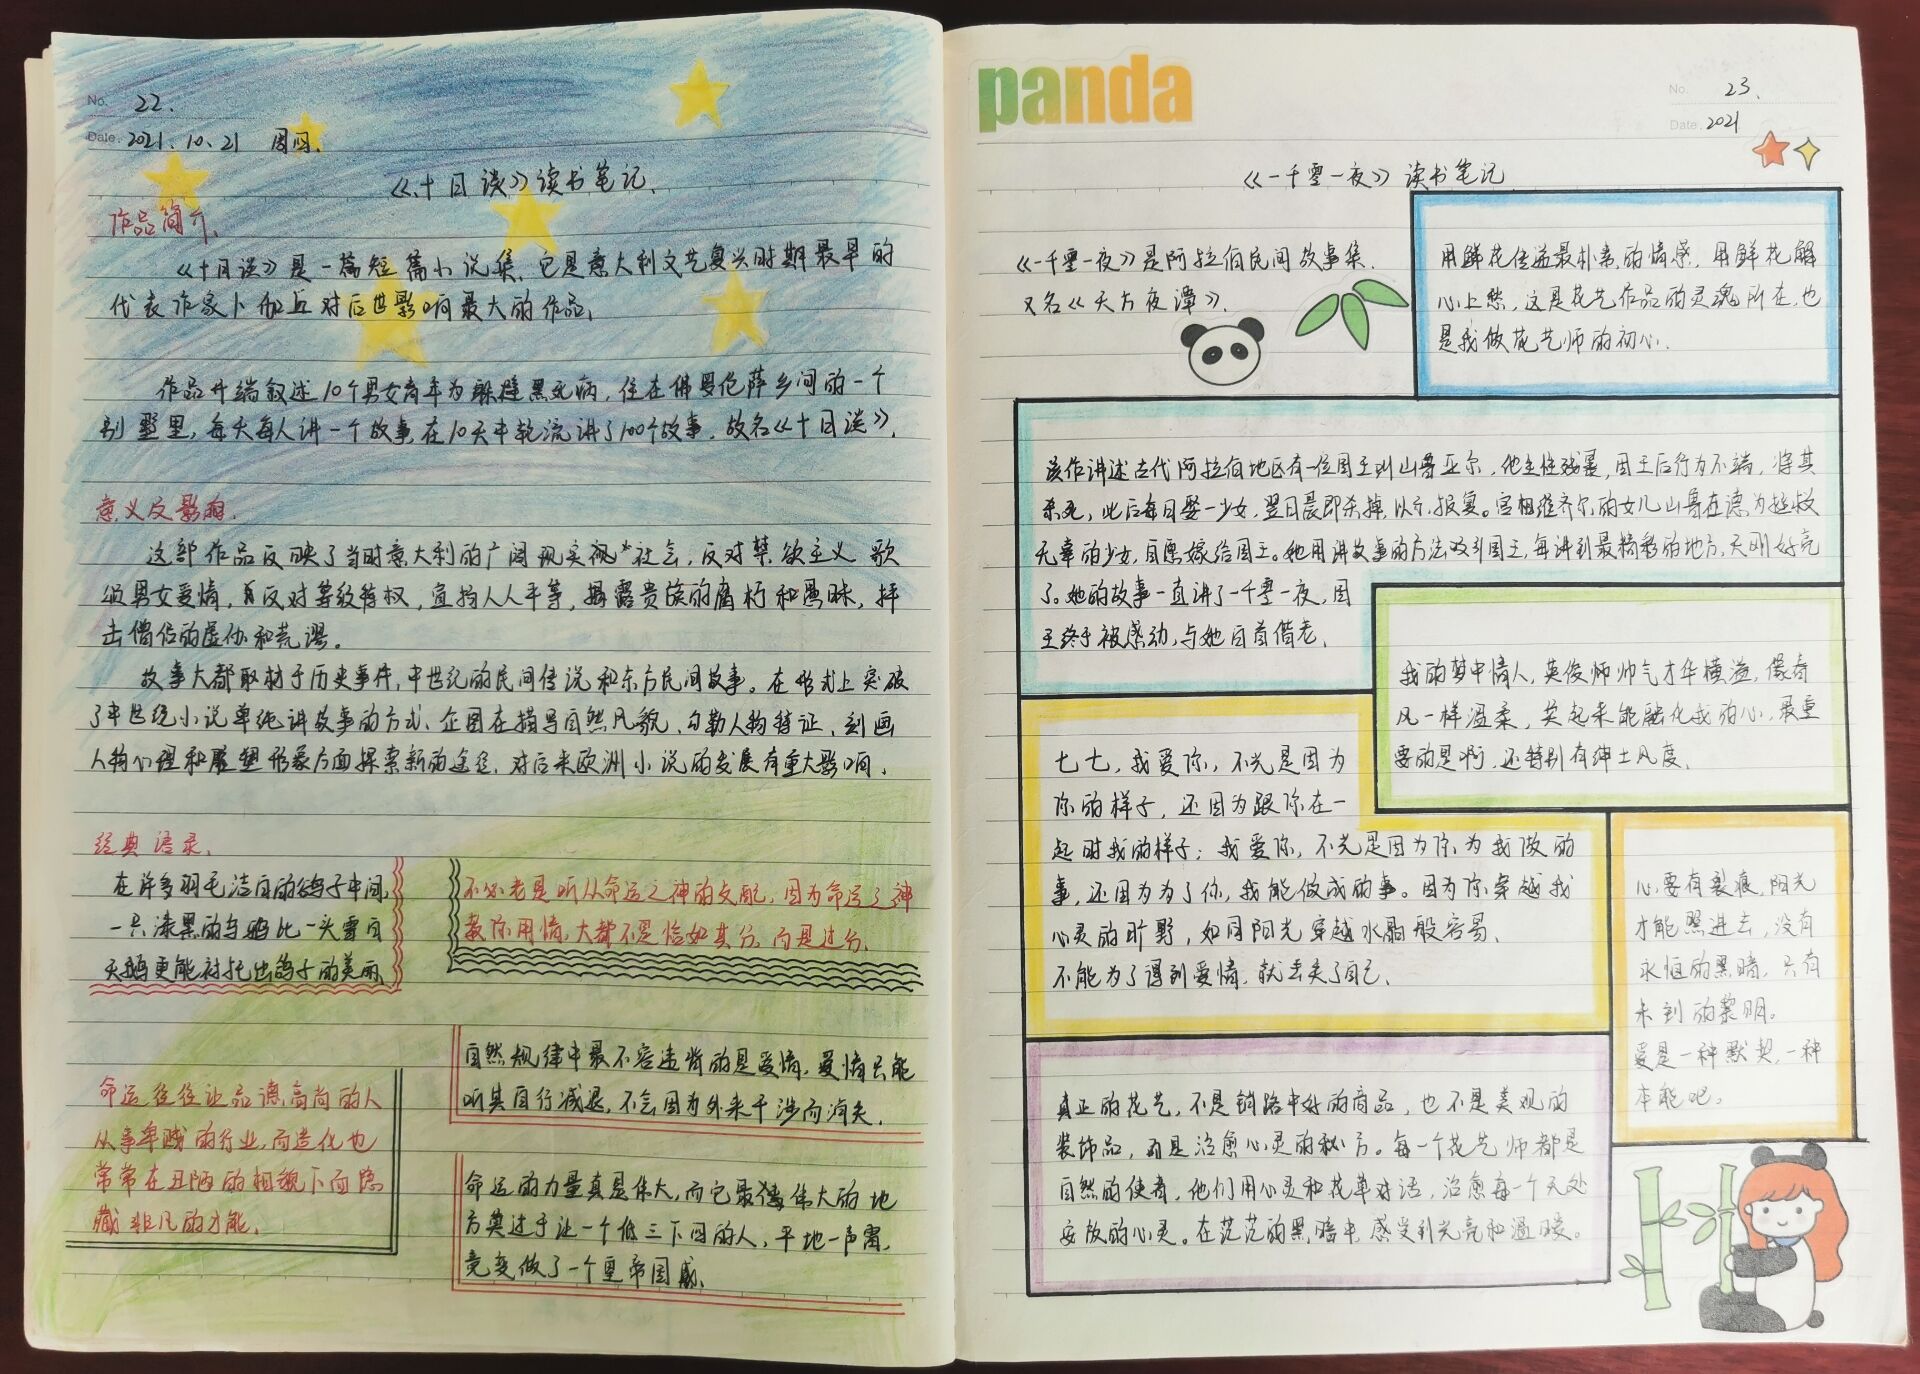 No. 22.
Date. 2021.10.21 周四.
《十日谈》读书笔记.
作品简介.
《十日谈》是一篇短篇小说集.它是意大利文艺复兴时期最早的
代表作家卜伽丘对后世影响最大的作品.
作品开端叙述10个男女青年为躲避黑死病,住在佛罗伦萨乡间的一个
别墅里,每天每人讲一个故事,在10天中轮流讲了100个故事,故名《十日谈》.
意义及影响.
这部作品反映了当时意大利的广阔现实社会,反对禁欲主义 歌
颂男女爱情,反对等级特权,宣扬人人平等,揭露贵族的腐朽和愚昧,抨
击僧侣的虚伪和荒谬。
故事大都取材于历史事件,中世纪的民间传说和东方民间故事。在形式上突破
了中世纪小说单纯讲故事的方式,企图在描写自然风貌,勾勒人物特证,刻画
人物心理和雕塑形象方面探索新的途径,对后来欧洲小说的发展有重大影响.
经典语录.
在许多羽毛洁白的鸽子中间,
一只漆黑的乌鸦比一头雪白
天鹅更能衬托出鸽子的美丽.
不必老是听从命运之神的支配,因为命运之神
教你用情,大都不是恰如其分,而是过分.
自然规律中最不容违背的是爱情,爱情只能
听其自行减退,不会因为外来干涉而消失.
命运往往让品德高尚的人
从事卑贱的行业,而造化也
常常在丑陋的相貌下面隐
藏非凡的才能.
命运的力量真是伟大,而它最伟大的地
方莫过于让一个低三下四的人,平地一声雷,
竟变做了一个皇帝国戚.
panda
No. 23.
Date. 2021
《一千零一夜》读书笔记
《一千零一夜》是阿拉伯民间故事集.
又名《天方夜谭》.
用鲜花传递最朴素的情感,用鲜花解
心上愁,这是花艺作品的灵魂所在,也
是我做花艺师的初心.
该作讲述古代阿拉伯地区有一位国王叫山鲁亚尔,他生性残暴,因王后行为不端,将其
杀死,此后每日娶一少女,翌日晨即杀掉,以示报复。宫相维齐尔的女儿山鲁佐德,为拯救
无辜的少女,自愿嫁给国王。她用讲故事的方法吸引国王,每讲到最精彩的地方,天刚好亮
了。她的故事一直讲了一千零一夜,国
王终于被感动,与她白首偕老.
我的梦中情人,英俊帅气才华横溢,像春
风一样温柔,笑起来能融化我的心,最重
要的是啊,还特别有绅士风度.
七七,我爱你,不光是因为
你的样子,还因为跟你在一
起时我的样子;我爱你,不光是因为你为我做的
事,还因为为了你,我能做成的事。因为你穿越我
心灵的旷野,如同阳光穿越水晶般容易.
不能为了得到爱情,就丢失了自己.
心要有裂痕,阳光
才能照进去,没有
永恒的黑暗,只有
未到的黎明。
爱是一种默契,一种
本能吧。
真正的花艺,不是销路中好的商品,也不是美观的
装饰品,而是治愈心灵的秘方。每一个花艺师都是
自然的使者,他们用心灵和花草对话,治愈每一个无处
安放的心灵。在茫茫的黑暗中,感受到光亮和温暖。